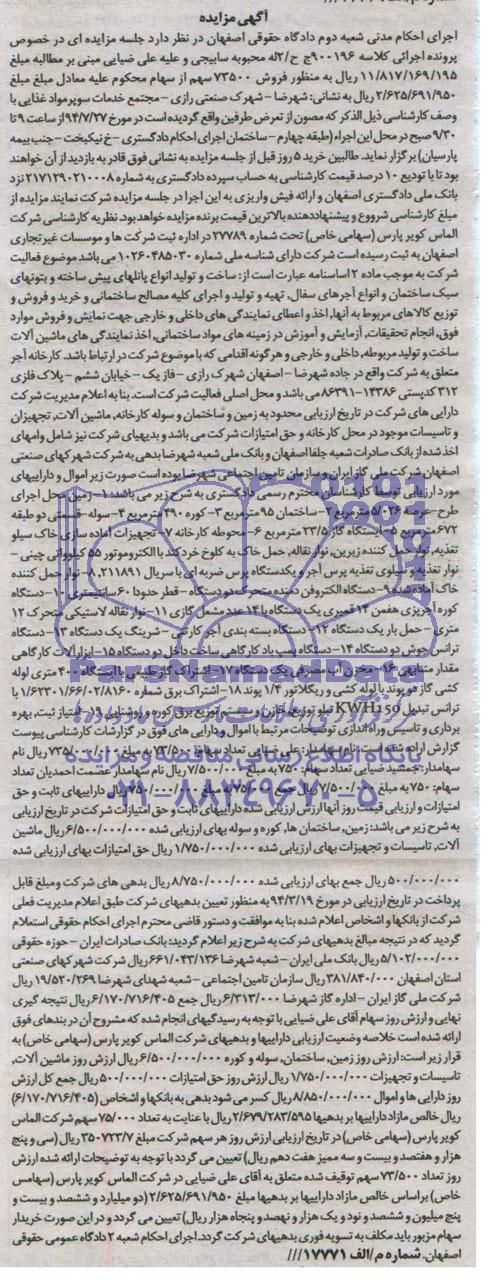 آگهی مزایده
اجرای احکام مدنی شعبه دوم دادگاه حقوقی اصفهان در نظر دارد جلسه مزایده ای در خصوص
پرونده اجرائی کلاسه ۹۰۰۱۹۶ج ح/۲له محبوبه سابیجی و علیه علی ضیایی مبنی بر مطالبه مبلغ
۱۱/۸۱۷/۱۶۹/۱۹۵ ریال به منظور فروش ۷۳۵۰۰ سهم از سهام محکوم علیه معادل مبلغ مبلغ
۲/۶۲۵/۶۹۱/۹۵۰ ریال به نشانی: شهرضا – شهرک صنعتی رازی – مجتمع خدمات سوپرمواد غذایی با
وصف کارشناسی ذیل الذکر که مصون از تعرض طرفین واقع گردیده است در مورخ ۹۴/۷/۲۷ از ساعت ۹ تا
۹/۳۰ صبح در محل این اجراء (طبقه چهارم – ساختمان اجرای احکام دادگستری – خ نیکبخت – جنب بیمه
پارسیان) برگزار نماید. طالبین خرید ۵ روز قبل از جلسه مزایده به نشانی فوق قادر به بازدید از آن خواهند
بود تا با تودیع ۱۰ درصد قیمت کارشناسی به حساب سپرده دادگستری به شماره ۲۱۷۱۲۹۰۲۱۰۰۰۸ نزد
بانک ملی دادگستری اصفهان و ارائه فیش واریزی به این اجرا در جلسه مزایده شرکت نمایند مزایده از
مبلغ کارشناسی شرووع و پیشنهاددهنده بالاترین قیمت برنده مزایده خواهد بود. نظریه کارشناسی شرکت
الماس کویر پارس (سهامی خاص) تحت شماره ۲۷۷۸۹ در اداره ثبت شرکت ها و موسسات غیرتجاری
اصفهان به ثبت رسیده است شرکت دارای شناسه ملی شماره ۱۰۲۶۰۴۸۵۰۳۰ می باشد موضوع فعالیت
شرکت به موجب ماده ۲ اساسنامه عبارت است از: ساخت و تولید انواع پانلهای پیش ساخته و بتونهای
سبک ساختمان و انواع آجرهای سفال, تهیه و تولید و اجرای کلیه مصالح ساختمانی و خرید و فروش و
توزیع کالاهای مربوط به آنها, اخذ و اعطای نمایندگی های داخلی و خارجی جهت نمایش و فروش موارد
فوق, انجام تحقیقات, آزمایش و آموزش در زمینه های مواد ساختمانی, اخذ نمایندگی های ماشین آلات
ساخت و تولید مربوطه, داخلی و خارجی و هرگونه اقدامی که با موضوع شرکت در ارتباط باشد. کارخانه آجر
متعلق به شرکت واقع در جاده شهرضا – اصفهان شهرک رازی – فاز یک – خیابان ششم – پلاک فلزی
۳۱۲ کدپستی ۱۴۳۸۶-۸۶۳۹۱ می باشد و محل اصلی فعالیت شرکت است. بنا به اعلام مدیریت شرکت
دارایی های شرکت در تاریخ ارزیابی محدود به زمین و ساختمان و سوله کارخانه, ماشین آلات, تجهیزان
و تاسیسات موجود در محل کارخانه و حق امتیازات شرکت می باشد و بدیهیای شرکت نیز شامل وامهای
اخذ شده از بانک صادرات شعبه جلفا اصفهان و بانک ملی شعبه شهرضا بدهی به شرکت شهر کهای صنعتی
اصفهان شرکت ملی گاز ایران و سازمان تامین اجتماعی شهرضا بوده است صورت زیر اموال و داراییهای
مورد ارزیابی توسط کارشناسان محترم رسمی دادگستری به شرح زیر می باشد: ۱- زمین محل اجرای
طرح – عرصه ۵/۰۲۶ مترمربع ۲- ساختمان ۹۵ مترمربع ۳- کوره ۴۹۰ مترمربع ۴- سوله – قسمتی دو طبقه
۶۷۲ مترمربع ۵- ایستگاه گاز ۲۳/۵ مترمربع ۶- محوطه کارخانه ۷- تجهیزات آماده سازی خاک سیلو
تغذیه, نوار حمل کننده زیرین, نوار نقاله, حمل خاک به کلوخ خرد کند با الکتروموتور ۵۵ کیلوواتی چینی –
نوار تغذیه و سیلوی تغذیه پرس آجر و یکدستگاه پرس ضربه ای با سریال ۲۱۱۸۹۱, ۸- نوار حمل کننده
خاک آماده شده ۹- دستگاه الکتروفن دمنده متحرک دو دستگاه – قطر حدودا ۶۰ سانتیمتری ۱۰- دستگاه
کوره آجرپزی هفمن ۱۴ قمیری یک دستگاه با ۱۴ عدد مشعل گازی ۱۱- نوار نقاله لاستیکی متحرک ۱۲
متری – حمل بار یک دستگاه ۱۲- دستگاه بسته بندی آجر کارتنی – شرینگ یک دستگاه ۱۳- دستگاه
ترانس جوش دو دستگاه ۱۴- دستگاه پمپ باد کارگاهی ساخت داخل دو دستگاه ۱۵- ابزار آلات کارگاهی
مقدار متنابهی ۱۶- مخزن آب مصرفی یک دستگاه ۱۷- اشتراک گاز طبیعی با ایستگاه – ۴۰۰ متری لوله
کشی گاز دو پوند با لوله کشی و ریگلاتور ۱/۴ پوند ۱۸- اشتراک برق شماره ۱/۶۲۳۰۱/۶۶/۰۲/۸۱۶۰ با
ترانس تبدیل KWH150 تابلو توزیع, خازن و سیستم توزیع برق کوره و روشنایی ۱۹- امتیاز ثبت, بهره
برداری و تاسیس و راه اندازی توضیحات مرتبط با اموال و دارایی های فوق در گزارشات کارشناسی پیوست
گزارش ارائه شده است. نام سهامدار: علی ضیایی تعداد سهام: ۷۳/۵۰۰ به مبلغ ۷۳۵/۰۰۰/۰۰۰ ریال نام
سهامدار: جمشید ضیایی تعداد سهام: ۷۵۰ به مبلغ ۷/۵۰۰/۰۰۰ ریال نام سهامدار عشمت احمدیان تعداد
سهام: ۷۵۰ به مبلغ ۷/۵۰۰/۰۰۰ ریال جمع ۷۵/۰۰۰ به مبلغ ۷۵۰/۰۰۰/۰۰۰ ریال داراییهای ثابت و حق
امتیازات و ارزیابی قیمت روز آنها ارزش ارزیابی شده داراییهای ثابت و حق امتیازات شرکت در تاریخ ارزیابی
به شرح زیر می باشد: زمین, ساختمان ها, کوره و سوله بهای ارزیابی شده ۶/۵۰۰/۰۰۰/۰۰۰ ریال ماشین
آلات, تاسیسات و تجهیزات بهای ارزیابی شده ۱/۷۵۰/۰۰۰/۰۰۰ ریال حق امتیازات بهای ارزیابی شده
۵۰۰/۰۰۰/۰۰۰ ریال جمع بهای ارزیابی شده ۸/۷۵۰/۰۰۰/۰۰۰ ریال بدهی های شرکت و مبلغ قابل
پرداخت در تاریخ ارزیابی در مورخ ۹۴/۳/۱۹ به منظور تعیین بدهیهای شرکت طبق اعلام مدیریت فعلی
شرکت از بانکها و اشخاص اعلام شده بنا به موافقت و دستور قاضی محترم اجرای احکام حقوقی استعلام
گردید که در نتیجه مبالغ بدهیهای شرکت به شرح زیر اعلام گردید: بانک صادرات ایران – حوزه حقوقی
۵/۱۰۲/۰۰۰/۰۰۰ ریال بانک ملی ایران – شعبه شهرضا ۶۶۱/۰۴۳/۱۳۶ ریال شرکت شهر کهای صنعتی
استان اصفهان ۳۸۱/۸۴۰/۰۰۰ ریال سازمان تامین اجتماعی – شعبه شهدای شهرضا ۱۹/۵۲۰/۲۶۹ ریال
شرکت ملی گاز ایران – اداره گاز شهرضا ۶/۳۱۳/۰۰۰ ریال جمع ۶/۱۷۰/۷۱۶/۴۰۵ ریال نتیجه گیری
نهایی و ارزش روز سهام آقای علی ضیایی با توجه به رسیدگیهای انجام شده که مشروح آن در بندهای فوق
ارائه شده است خلاصه وضعیت ارزیابی داراییها و بدهیهای شرکت الماس کویر پارس (سهامی خاص) به
قرار زیر است: ارزش روز زمین, ساختمان, سوله و کوره ۶/۵۰۰/۰۰۰/۰۰۰ ریال ارزش روز ماشین آلات,
تاسیسات و تجهیزات ۱/۷۵۰/۰۰۰/۰۰۰ ریال ارزش روز حق امتیازات ۵۰۰/۰۰۰/۰۰۰ ریال جمع کل ارزش
روز دارایی ها و اموال ۸/۸۵۰/۰۰۰/۰۰۰ ریال کسر می شود بدهی به بانکها و اشخاص (۶/۱۷۰/۷۱۶/۴۰۵)
ریال خالص مازاد داراییها بر بدهیها ۲/۶۷۹/۲۸۳/۵۹۵ ریال با عنایت به تعداد ۷۵/۰۰۰ سهم شرکت الماس
کویر پارس (سهامی خاص) در تاریخ ارزیابی ارزش روز هر سهم شرکت مبلغ ۳۵۰۷۲۳/۷ ریال (سی و پنج
هزار و هفتصد و بیست و سه ممیز هفت دهم ریال) تعیین می گردد با توجه به توضیحات ارائه شده ارزش
روز تعداد ۷۳/۵۰۰ سهم توقیف شده متعلق به آقای علی ضیایی در شرکت الماس کویر پارس (سهامس
خاص) بر اساس خالص مازاد داراییها بر بدهیها مبلغ ۲/۶۲۵/۶۹۱/۹۵۰ (دو میلیارد و ششصد و بیست و
پنج میلیون و ششصد و نود و یک هزار و نهصد و پنجاه هزار ریال) تعیین می گردد و در این صورت خریدار
سهام مزبور باید مکلف به تسویه فوری بدهیهای شرکت گردد. اجرای احکام شعبه ۲ دادگاه عمومی حقوقی
اصفهان. شماره م/الف ۱۷۷۷۱///
ParsNamadData
پایگاه اطلاع رسانی مناقصه و مزایده
۰۲۱-۸۸۳۴۹۶۷۰-۵